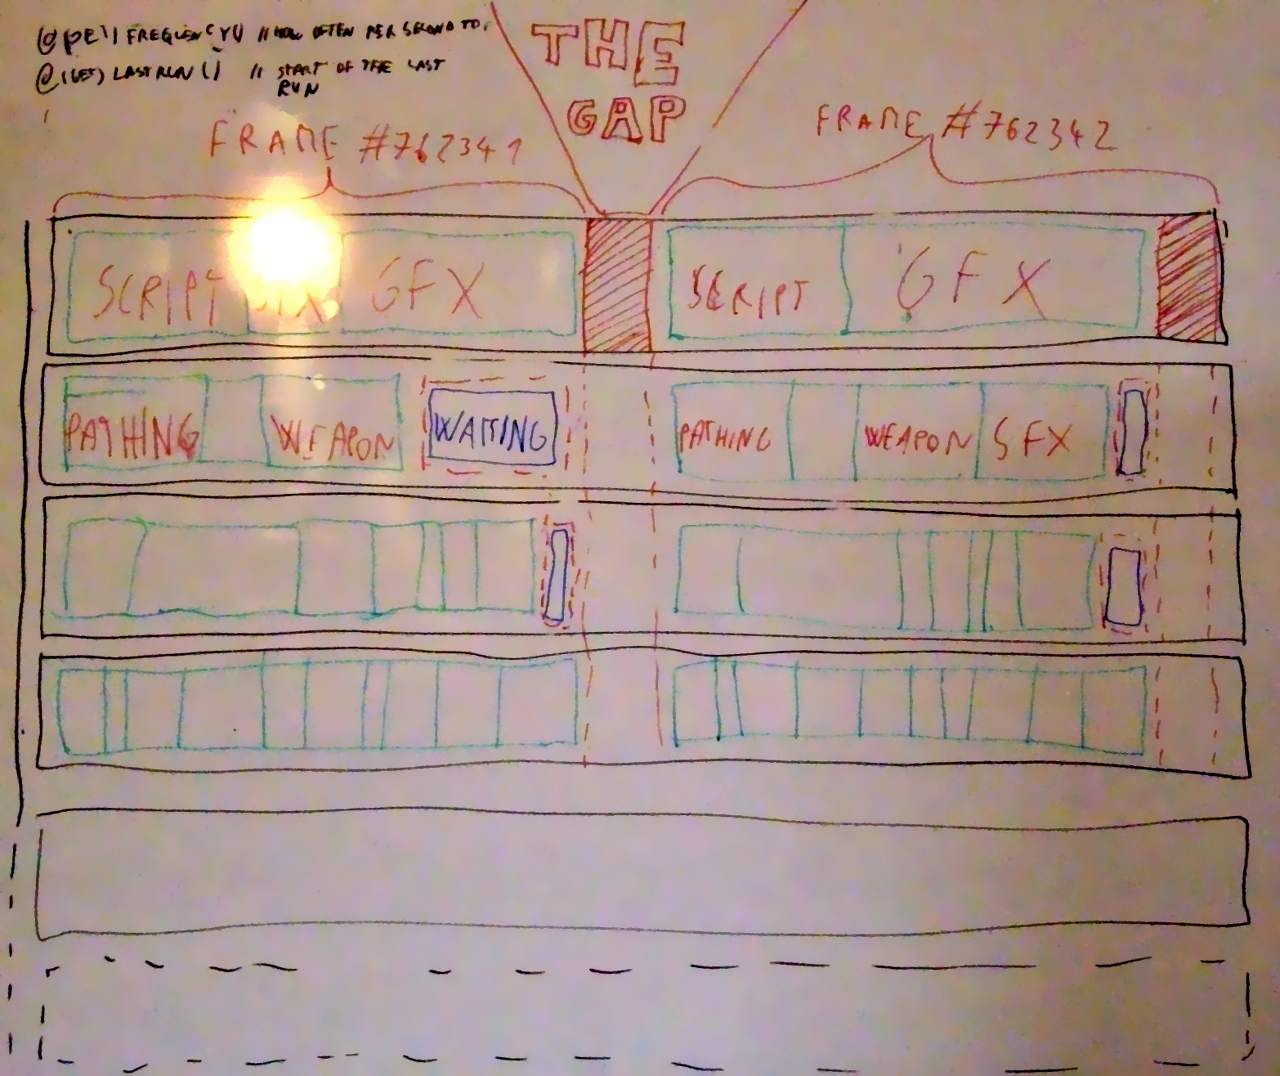 FREQUENCY() // HOW OFTEN PER SECOND TO
@(GET) LASTRUN() // START OF THE LAST
RUN
THE
GAP
FRAME #762341
FRAME #762342
SCRIPT SFX GFX
SCRIPT GFX
PATHING WEAPON WAITING
PATHING WEAPON SFX